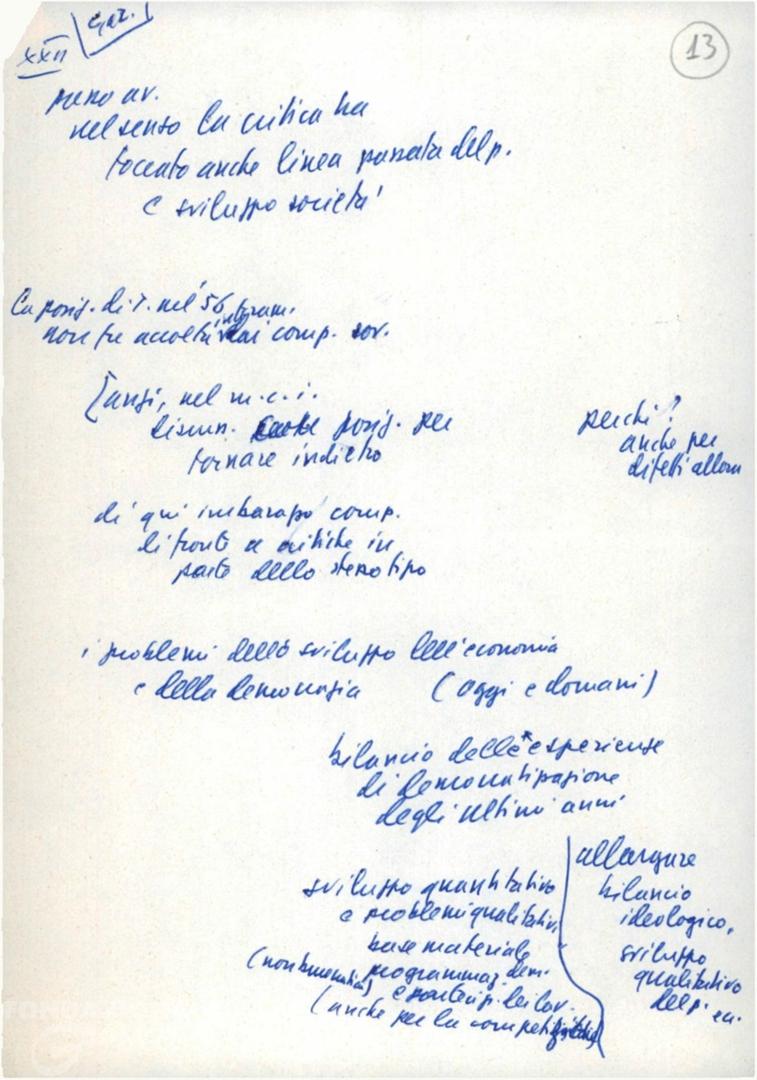 XXII
13
nel senso la critica ha
toccato anche linea passata del p.
e sviluppo società
La posiz. di T. nel '56
non fu accolta dai comp. sov.
[anzi, nel m.c.i.
posiz. per
tornare indietro
perché?
anche per
difetti allora
di qui imbarazzo comp.
di fronte a critiche in
parte dello stesso tipo
i problemi dello sviluppo dell'economia
e della democrazia (oggi e domani)
bilancio delle esperienze
di democratizzazione
degli ultimi anni
sviluppo quantitativo
e problemi qualitativi
base materiale
programmaz. dem.
e partecip. dei lav.
(anche per la
allargare
bilancio
ideologico,
sviluppo
qualitativo
del p.